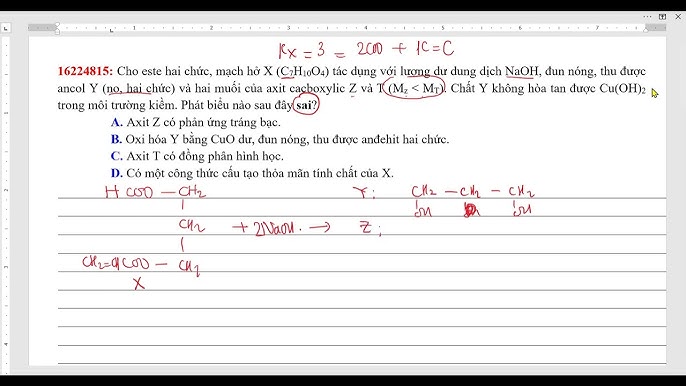 kx = 3 = 2COO + 1C=C
16224815: Cho este hai chức, mạch hở X (C7H10O4) tác dụng với lượng dư dung dịch NaOH, đun nóng, thu được
ancol Y (no, hai chức) và hai muối của axit cacboxylic Z và T (MZ < MT). Chất Y không hòa tan được Cu(OH)2
trong môi trường kiềm. Phát biểu nào sau đây sai?
A. Axit Z có phản ứng tráng bạc.
B. Oxi hóa Y bằng CuO dư, đun nóng, thu được anđehit hai chức.
C. Axit T có đồng phân hình học.
D. Có một công thức cấu tạo thỏa mãn tính chất của X.
H COO – CH2 Y: CH2 – CH2 – CH2
OH OH
CH2 + 2NaOH → Z:
CH2=CHCOO – CH2
X